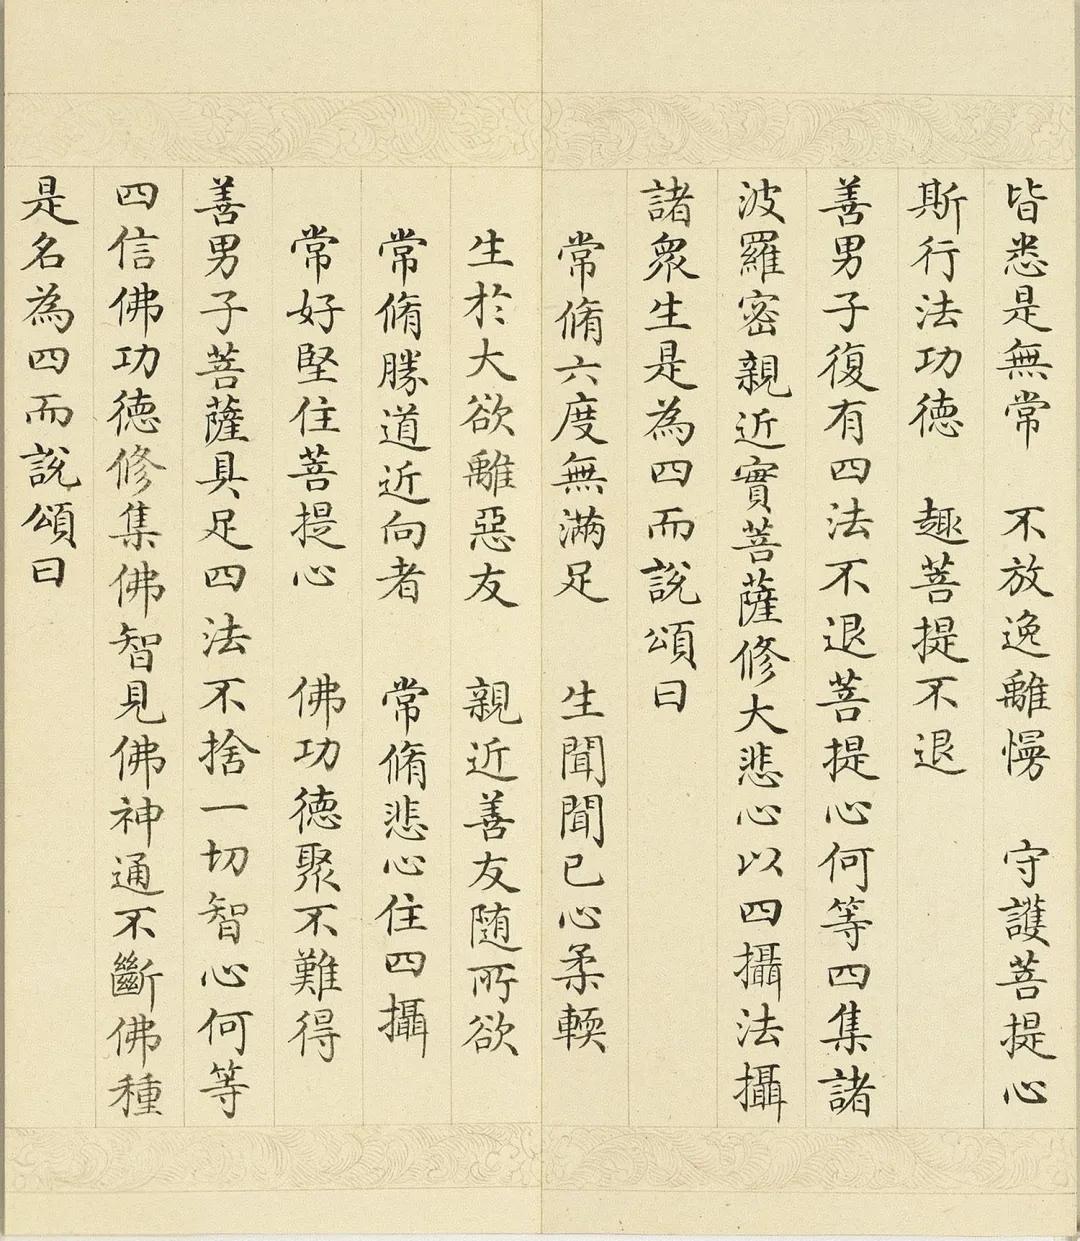 皆悉是無常　不放逸離慢　守護菩提心
斯行法功德　趣菩提不退
善男子復有四法不退菩提心何等四集諸
波羅密親近實菩薩修大悲心以四攝法攝
諸衆生是為四而說頌曰
常脩六度無滿足　生聞聞已心柔輭
生於大欲離惡友　親近善友随所欲
常脩勝道近向者　常脩悲心住四攝
常好堅住菩提心　佛功德聚不難得
善男子菩薩具足四法不捨一切智心何等
四信佛功德修集佛智見佛神通不斷佛種
是名為四而說頌曰